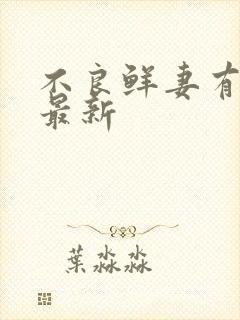 不良鲜妻有
最新
葉淼淼